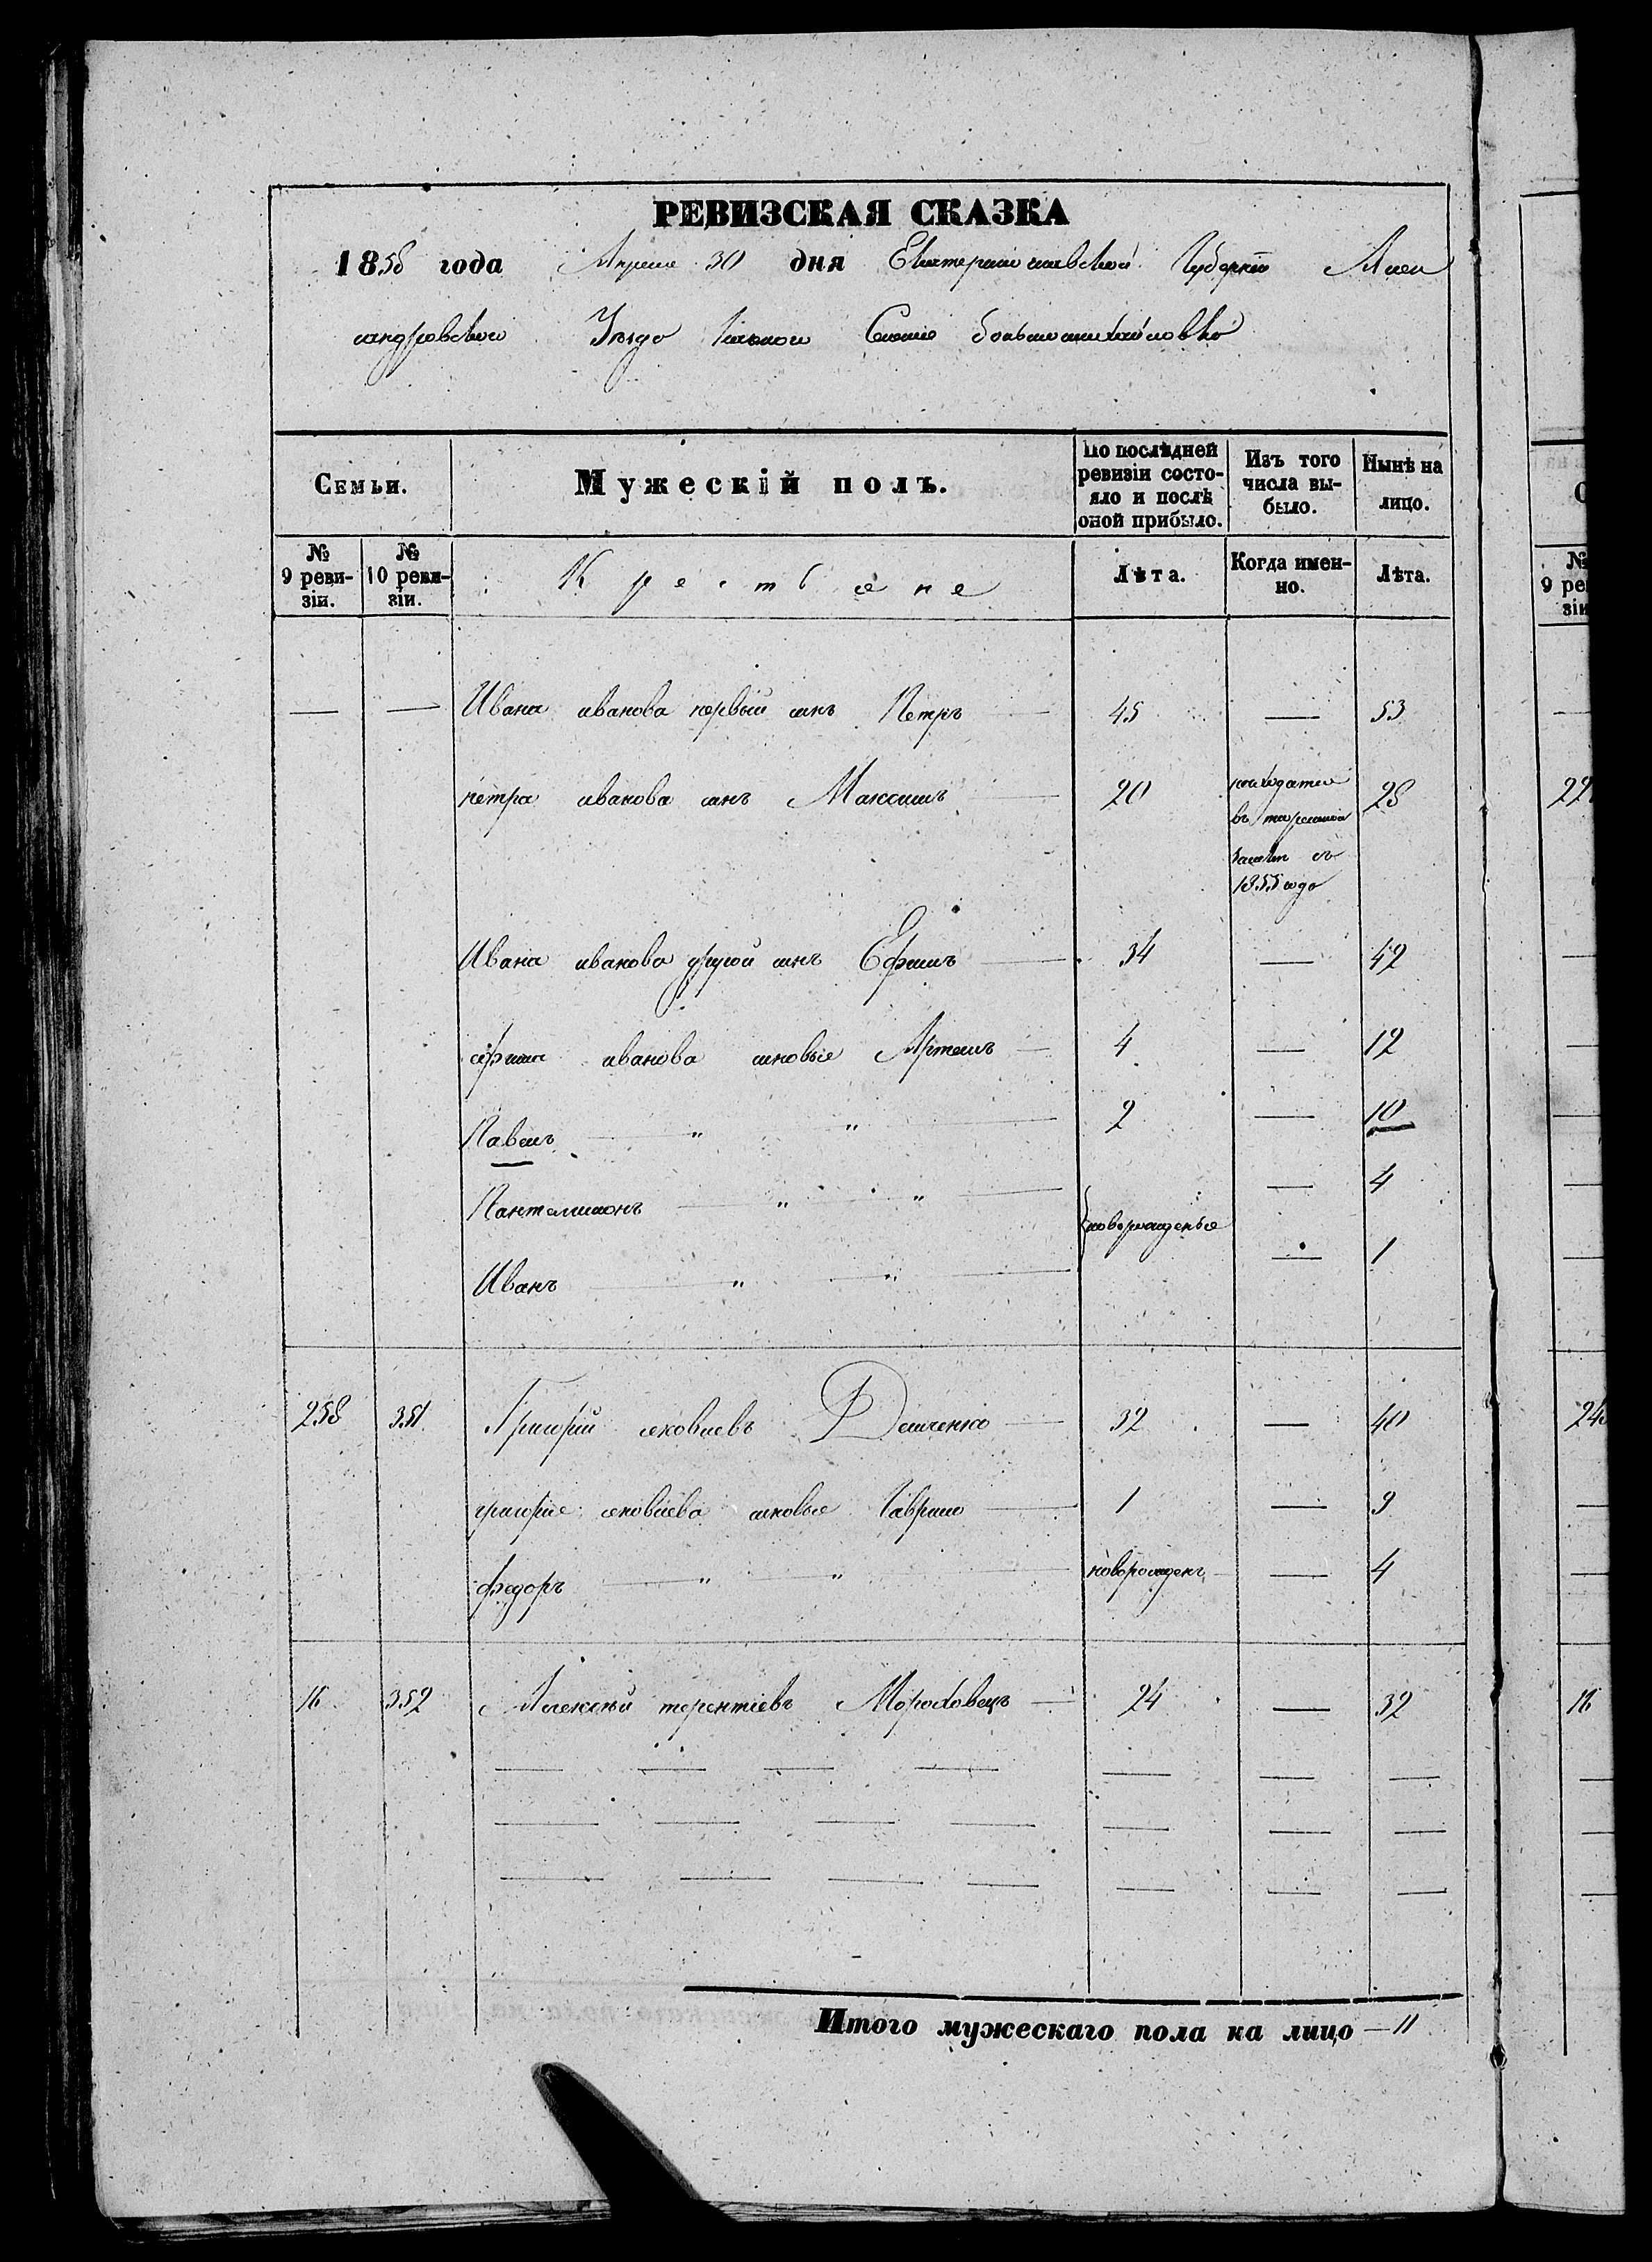 РЕВИЗСКАЯ СКАЗКА
1858 года Апреля 30 дня Екатеринославской Губернии Алек
сандровского Уезда Селение большемихайловки
Семьи.
Мужескій полъ.
По послѣдней ревизіи состо-
яло и послѣ оной прибыло.
Изъ того числа вы-
было.
Нынѣ на лицо.
№ 9 реви-
зіи.
№ 10 реви-
зіи.
Крестьяне
Лѣта.
Когда имен-
но.
Лѣта.
— — Ивана иванова первый сынъ Петръ — 45 — 53
петра иванова сынъ Максимъ — 20 находится 28
въ
съ
1855 года
Ивана иванова другой сынъ Ефимъ — 34 — 42
ефима иванова сыновья Артемъ — 4 — 12
Павелъ — " " — 2 — 10
Пантелимонъ — " " — новорожденые — 4
Иванъ — " " — — 1
258 351 Григорій яковлевъ Демченко — 32 — 40
григорія яковлева сыновья Гаврило — 1 — 9
федоръ — " " — новорожденъ — 4
16 352 Алексѣй терентіевъ Мороховецъ — 24 — 32
Итого мужескаго пола на лицо — 11